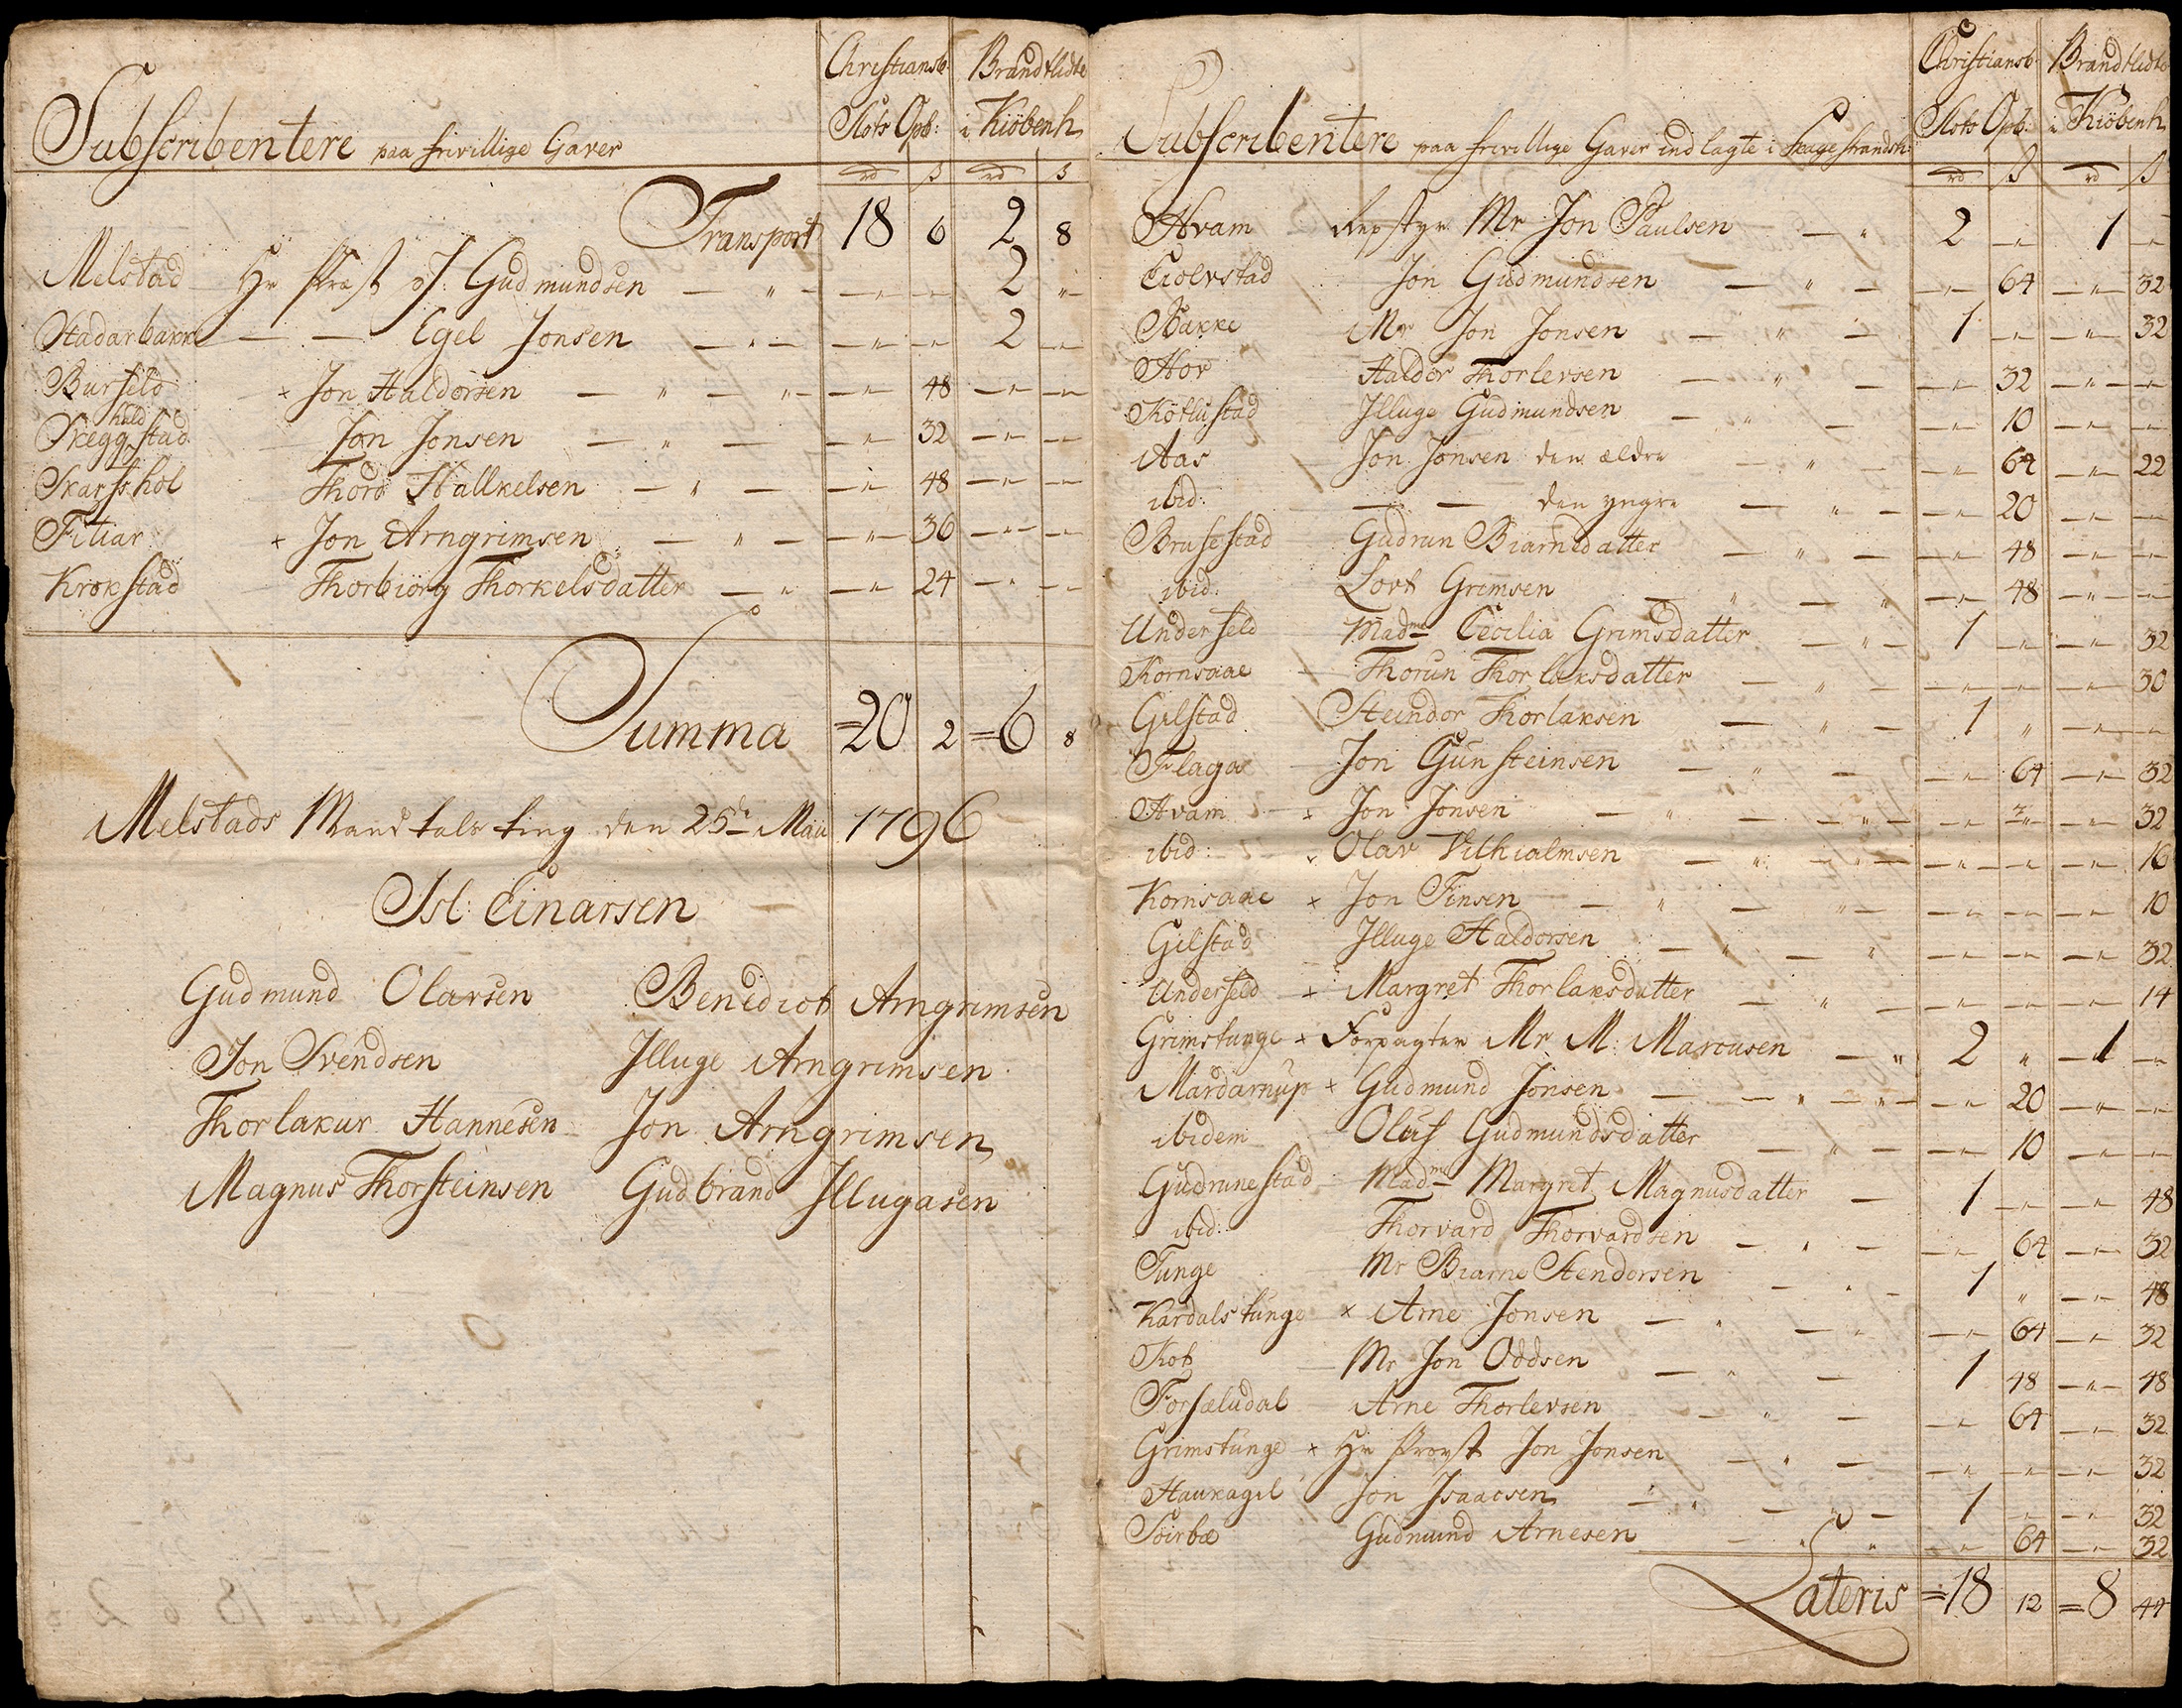 Christiansb. Brandtlidte
Slots Opb: i Kiöbenh
Subscribentere paa frivillige Gaver
rd ß rd ß
Transport 18 6 2 8
Melstad Hr Præst O J: Gudmundsen — " — — " — 2 "
Stadarbakke — — Egel Jonsen — " — — " — 2 — "
Burfeld × Jon Haldorsen — " — " — — " 48 — " — — "
Skeggvhaldstad Jon Jonsen — " — — " 32 — " — — "
Skarfshol Thord Hallkelsen — " — — " 48 — " — — "
Fitiar × Jon Arngrimsen — " — — " — 36 — " — — "
Krokstad Thorbiörg Thorkelsdatter — " — " 24 — " — — "
Summa =20 2 =6 8
Melstads Mandtals ting den 25de Maii 1796
Isl: Einarsen
Gudmund Olavsen Benedict Arngrimsen
Jon Svendsen Illuge Arngrimsen
Thorlakur Hannesen Jon Arngrimsen
Magnus Thorsteinsen Gudbrand Illugasen
Christiansb. Brandtlidte
Slots Opb: i Kiöbenh
Subscribentere paa frivillige Gaver indlagte i Skagestrandsh:
rd ß rd ß
Hvam Repstyr Mr Jon Paulsen — " 2 — " 1 — "
Eiolvstad Jon Gudmundsen — " — — " 64 — " — 32
Bakke Mr Jon Jonsen — " — 1 — " — " — 32
Hov Haldor Thorlevsen — " — — " 32 — " — — "
Kötlustad Illuge Gudmundsen — " — — " 10 — " — — "
Aas Jon Jonsen den ældre — " — — " 64 — " 22
ibid: — — den yngre — " — — " 20 — " — "
Brusestad Gudrun Biarnedatter — " — — " 48 — " — "
ibid: Lovt Grimsen — " — " — " 48 — " — "
Underfeld Madme Cecilia Grimsdatter — " — 1 — " — " — 32
Kornsaae Thorun Thorlaksdatter — " — — " — " — " — 30
Gilstad Steindor Thorlaksen — " — 1 " — " — "
Flaga Jon Gunsteinsen — " — — " 64 — " 32
Hvam × Jon Jonsen — " — — " — — " — " — " — 32
ibid: × Olav Vilhialmsen — " — " — — " — " — " — 16
Kornsaae × Jon Finsen — " — " — — " — " — " — 10
Gilstad Illuge Haldorsen — " — " — " — " — " — 32
Underfeld × Margret Thorlaksdatter — " — — " — " — " — 14
Grimstunge × Forpagter Mr M: Marcusen — " 2 " — 1 — "
Mardarnup × Gudmund Jonsen — — " — " — — " 20 — " — — "
ibidem Oluf Gudmundsdatter — " — — " 10 — " — "
Gudrunestad Madme Margret Magnusdatter — 1 — " — " 48
ibid: Thorvard Thorvardsen — " — — " 64 — " — 32
Tunge Mr Biarne Stendorsen — " — 1 " — " — 48
Kardalstunge × Arne Jonsen — " — " — " 64 — " — 32
Kot Mr Jon Oddsen — " — 1 48 — " — 48
Forsæludal Arne Thorlevsen — " — — " 64 — " 32
Grimstunge × Hr Provst Jon Jonsen — " — — " — " — " — 32
Haukagil Jon Isaacsen — " — " — 1 — " — " 32
Söirbæ Gudmund Arnesen — " " — " 64 — " 32
Lateris =18 12 =8 44